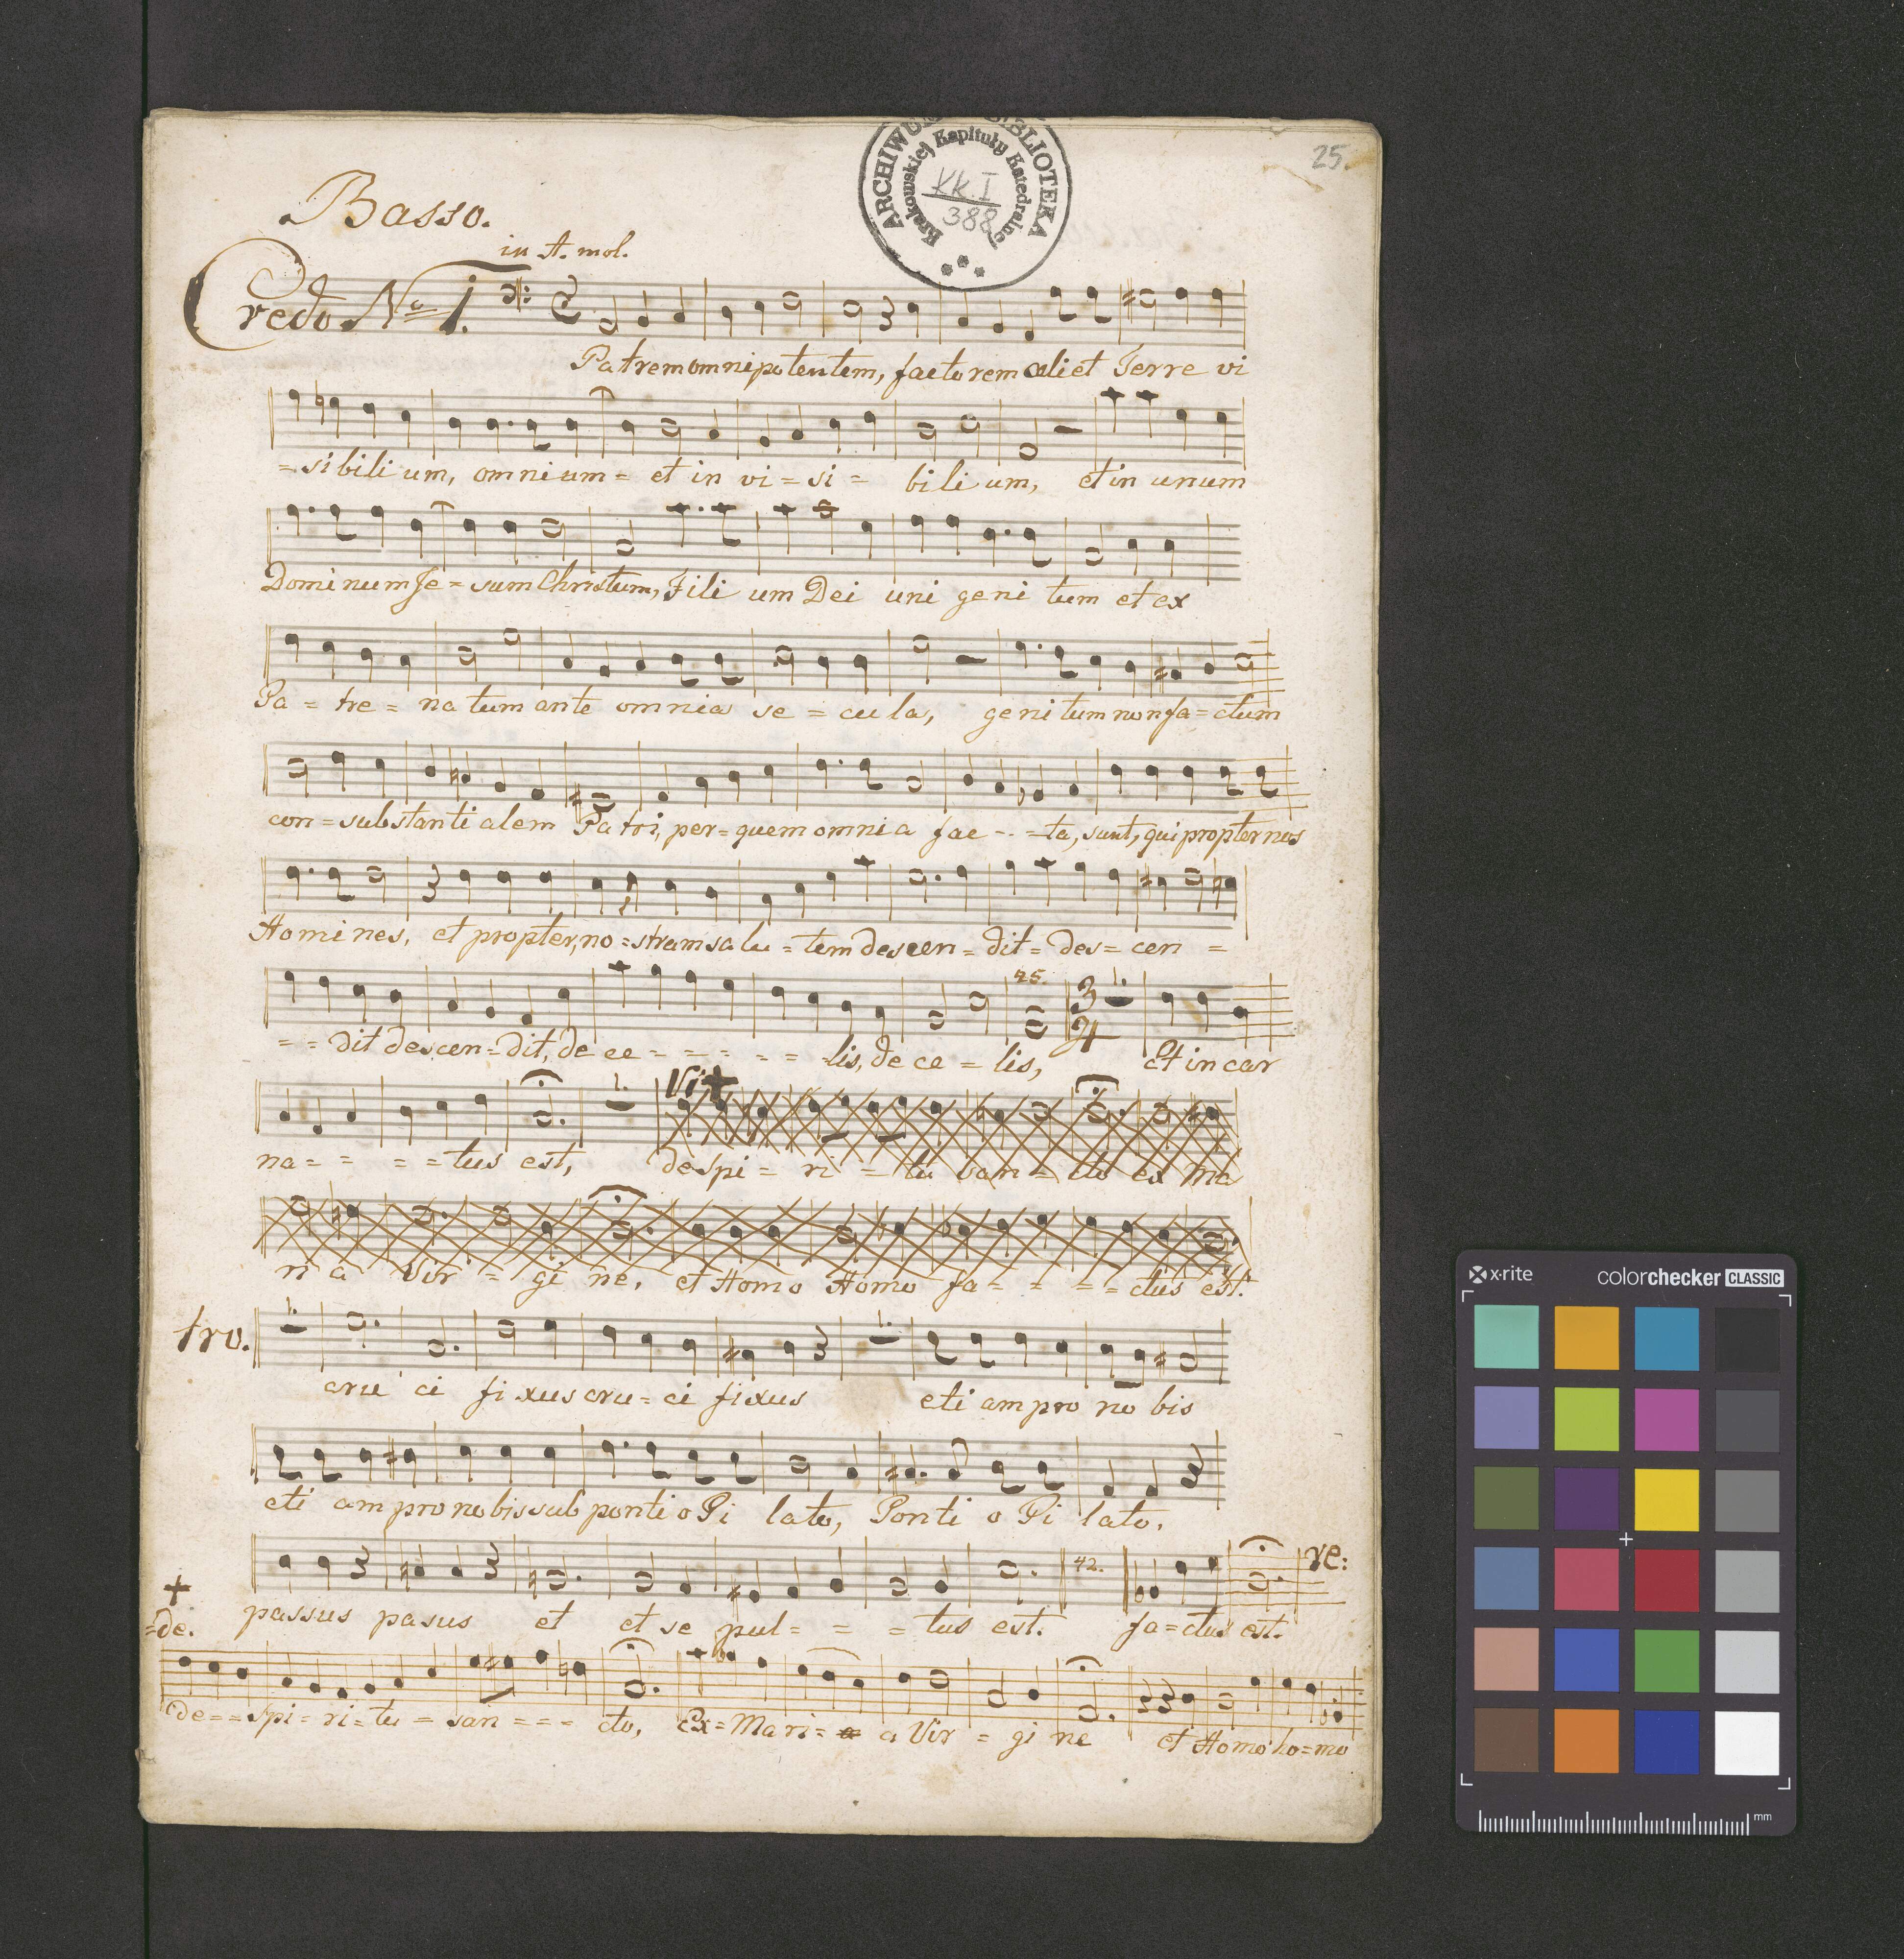 ARCHIWUM BIBLIOTEKA
Krakowskiej Kapituły Katedralnej
KK. I
388
25.
Basso.
in A. mol.
Credo No 1.
Patrem omnipotentem, factorem celi et Terre vi
=sibili um, omnium= et in vi=si= bilium, et in unum
Dominum Je=sum Christum, Fili um Dei uni geni tum et ex
Pa=tre=natum ante omnia se=cula, genitum non fa=ctum
con=substanti alem Patri, per=quem omnia fac--=ta, sunt, qui propter nos
Homines, et propter, no=stram salu=tem descen=dit=des=cen=
==dit descen=dit, de ce======lis, de ce=lis, et incar
45.
3
4
1.
na====tus est, de spi=ri=tu san=cto ex Ma
1.
Vi+
ri a Vir=gi ne, et Homo Homo fa====ctus est.
tro.
1.
1.
cru ci fixus cru=ci fixus eti am pro no bis
eti am pro nobis sub ponti o Pi lato, Ponti o Pi lato.
42.
ve:
+
=de.
passus pasus et et se pul===tus est. fa=ctus est.
de==spi=ri=tu=san===cto, Ex=Mari= a Vir=gi ne et Homo ho=mo
x·rite
colorchecker CLASSIC
mm